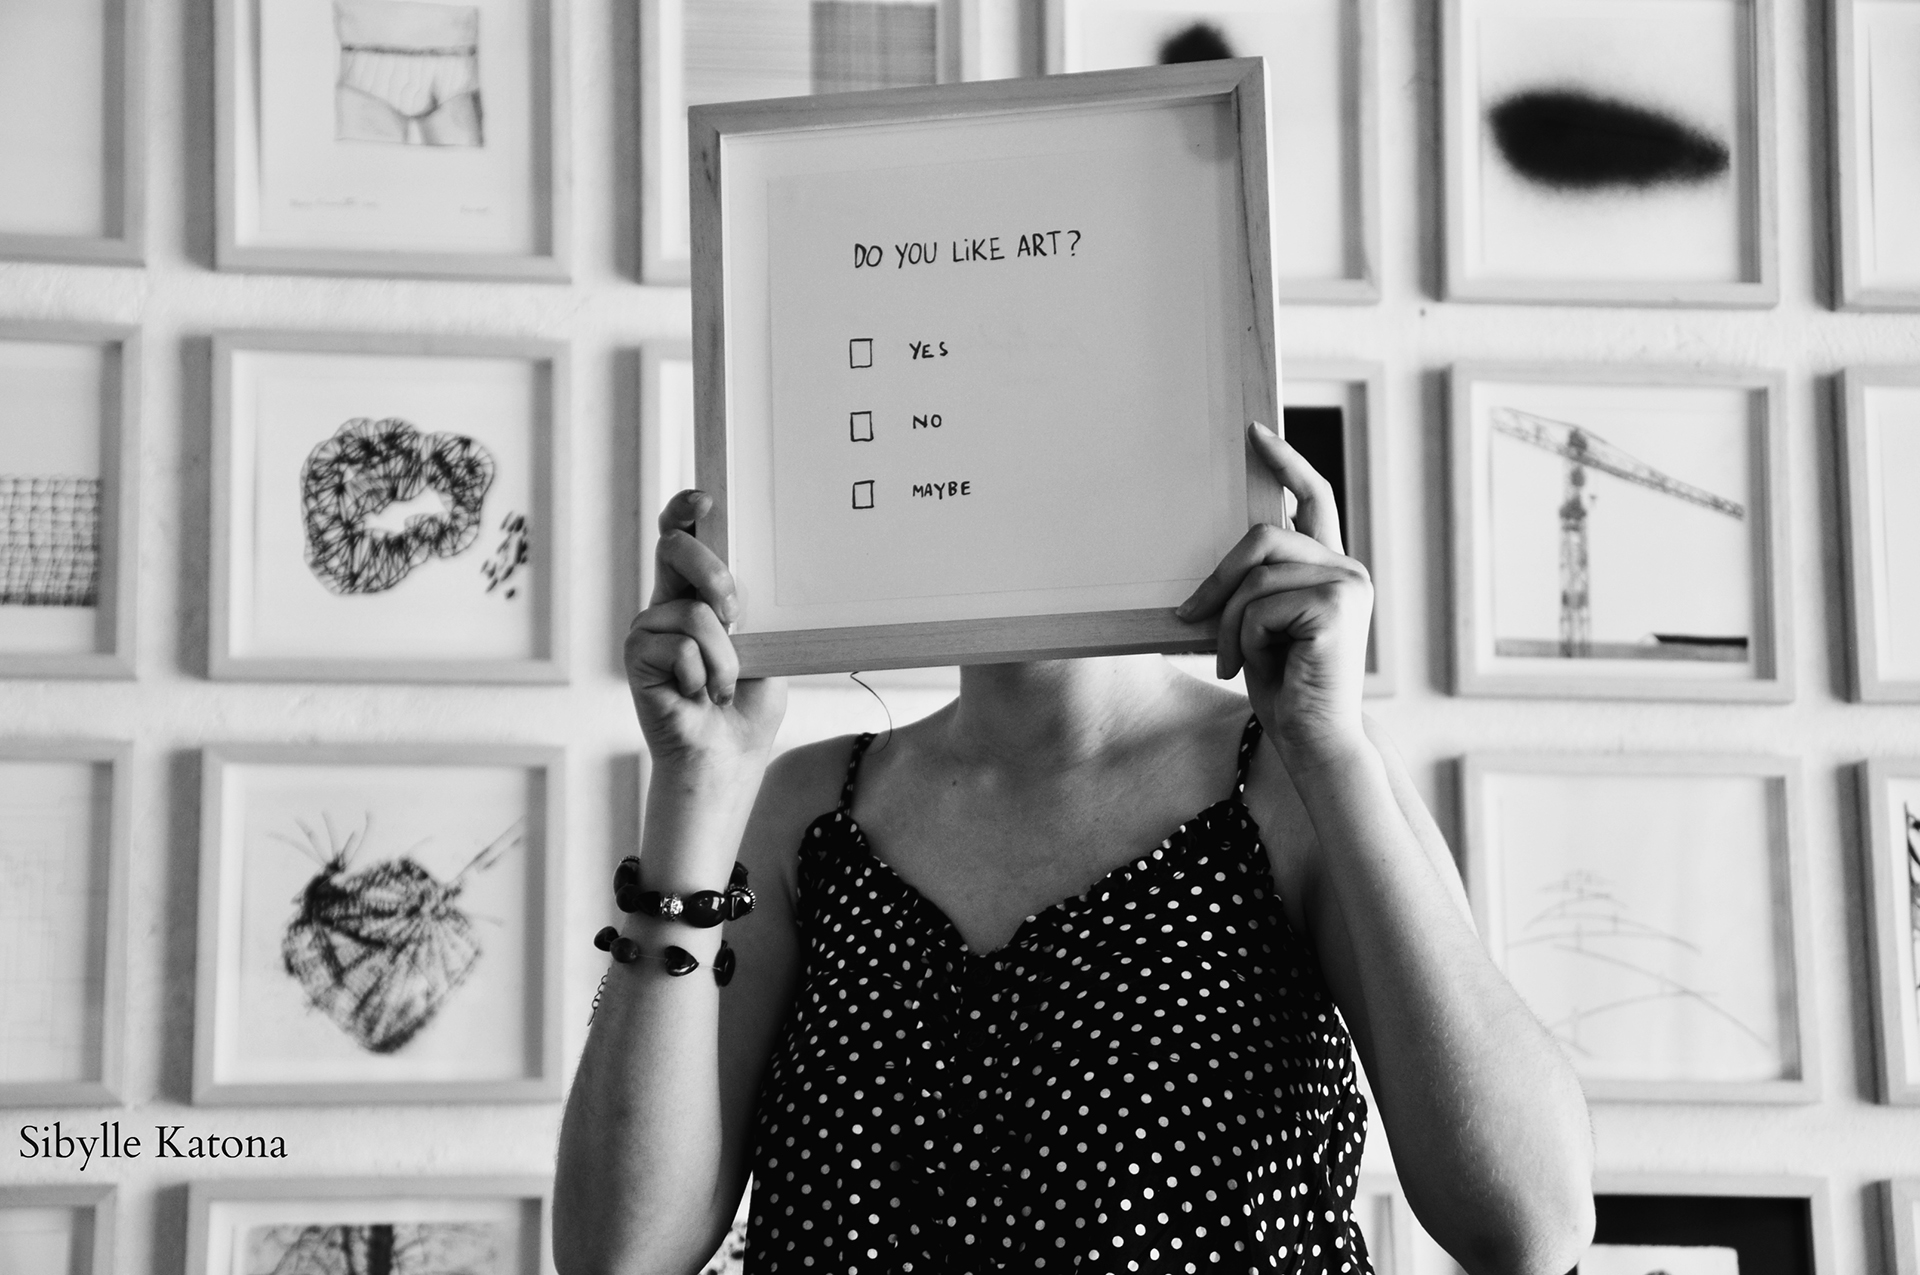 DO YOU LiKE ART?
YES
NO
MAYBE
Sibylle Katona